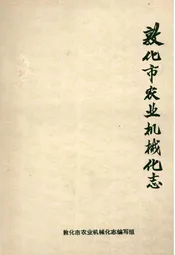 敦化市农业机械化志
敦化市农业机械化志编写组